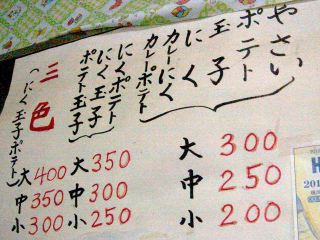 やさい
ポテト
玉子
にく
カレーにく
カレーポテト
大 300
中 250
小 200
にくポテト
にく玉子
ポテト玉子
大 350
中 300
小 250
三色
(にく玉子ポテト)
大 400
中 350
小 300